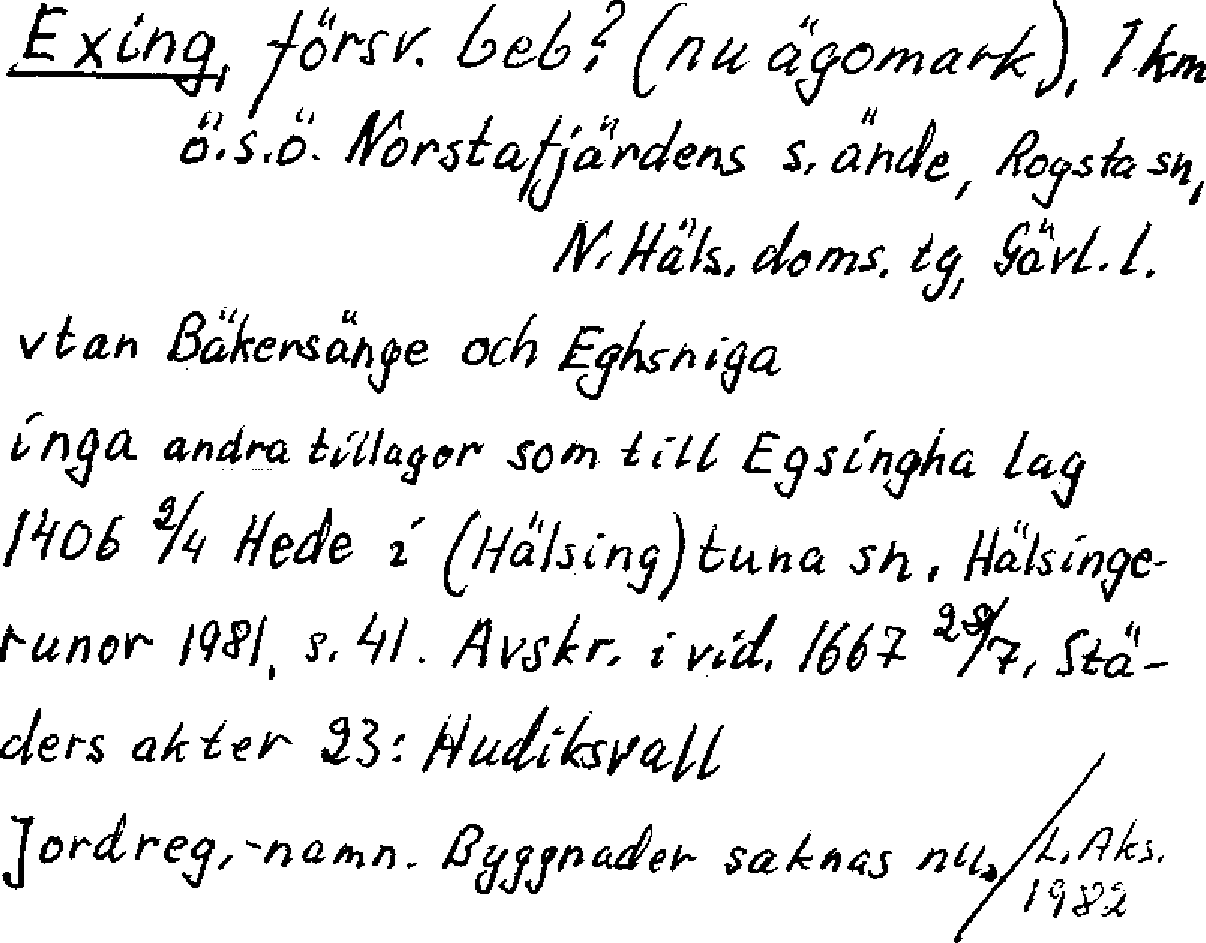 Exing, försv. beb? (nu ägomark), 1 km
ö.s.ö. Norstafjärdens s. ände, Rogsta sn,
N. Häls. doms. tg, Gävl. l.
vtan Bäkersänge och Eghsniga
inga andra tillagor som till Egsingha lag
1406 2/4 Hede i (Hälsing)tuna sn. Hälsinge-
runor 1981, s. 41. Avskr. i vid. 1667 /7. Stä-
ders akter 23: Hudiksvall
Jordreg,-namn. Byggnader saknas nu.
L. Aks.
1982